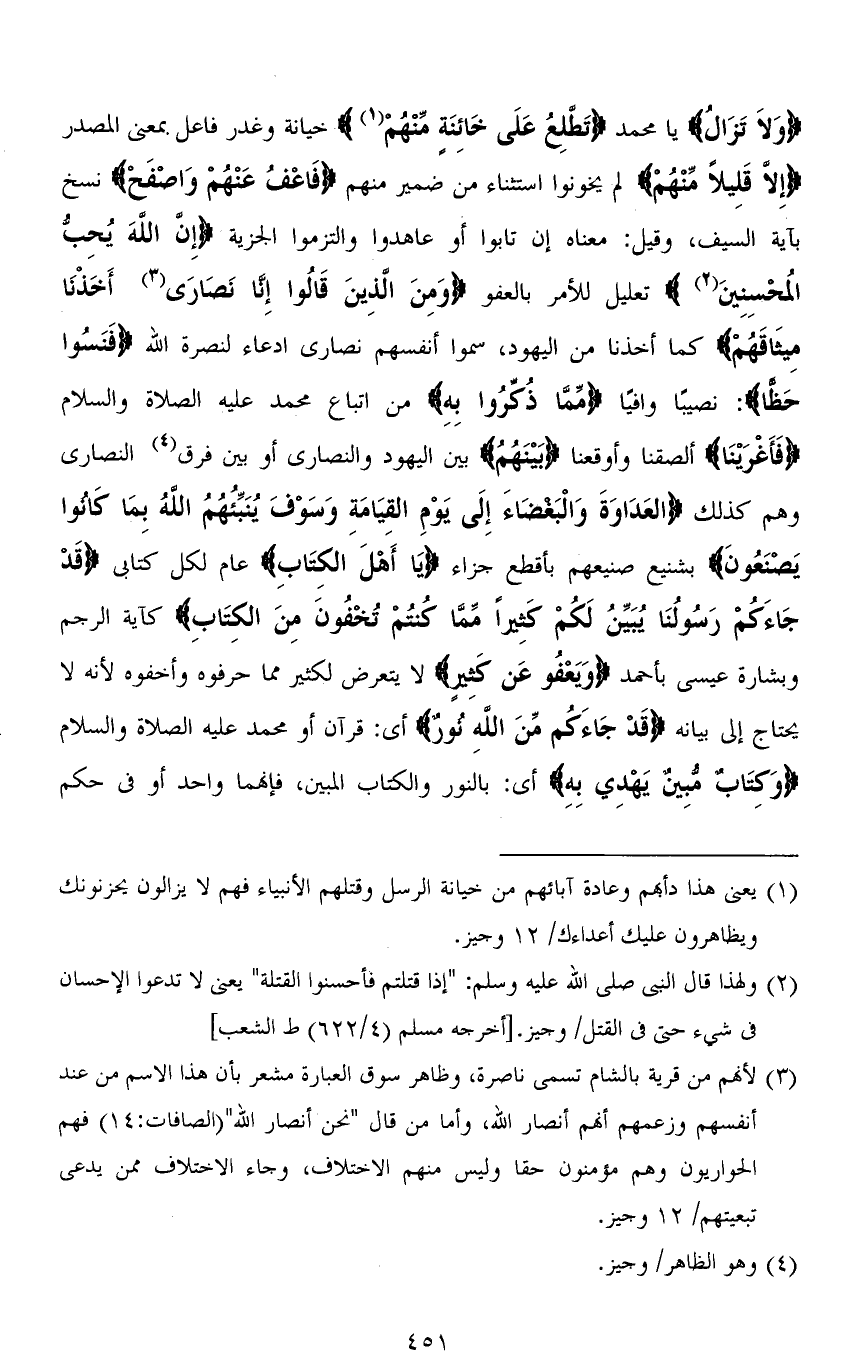 ﴿وَلاَ تَزَالُ﴾ يا محمد ﴿تَطَّلِعُ عَلَى خَائِنَةٍ مِّنْهُمْ(١)﴾ خيانة وغدر فاعل بمعنى المصدر
﴿إِلاَّ قَلِيلاً مِّنْهُمْ﴾ لم يخونوا استثناء من ضمير منهم ﴿فَاعْفُ عَنْهُمْ وَاصْفَحْ﴾ نسخ
بآية السيف، وقيل: معناه إن تابوا أو عاهدوا والتزموا الجزية ﴿إِنَّ اللَّهَ يُحِبُّ
المُحْسِنِينَ(٢)﴾ تعليل للأمر بالعفو ﴿وَمِنَ الَّذِينَ قَالُوا إِنَّا نَصَارَى(٣) أَخَذْنَا
مِيثَاقَهُمْ﴾ كما أخذنا من اليهود، سموا أنفسهم نصارى ادعاء لنصرة الله ﴿فَنَسُوا
حَظًّا﴾: نصيبًا وافيًا ﴿مِّمَّا ذُكِّرُوا بِهِ﴾ من اتباع محمد عليه الصلاة والسلام
﴿فَأَغْرَيْنَا﴾ ألصقنا وأوقعنا ﴿بَيْنَهُمُ﴾ بين اليهود والنصارى أو بين فرق(٤) النصارى
وهم كذلك ﴿العَدَاوَةَ وَالْبَغْضَاءَ إِلَى يَوْمِ القِيَامَةِ وَسَوْفَ يُنَبِّئُهُمُ اللَّهُ بِمَا كَانُوا
يَصْنَعُونَ﴾ بشنيع صنيعهم بأقطع جزاء ﴿يَا أَهْلَ الكِتَابِ﴾ عام لكل كتابى ﴿قَدْ
جَاءَكُمْ رَسُولُنَا يُبَيِّنُ لَكُمْ كَثِيراً مِّمَّا كُنتُمْ تُخْفُونَ مِنَ الكِتَابِ﴾ كآية الرجم
وبشارة عيسى بأحمد ﴿وَيَعْفُو عَن كَثِيرٍ﴾ لا يتعرض لكثير مما حرفوه وأخفوه لأنه لا
يحتاج إلى بيانه ﴿قَدْ جَاءَكُم مِّنَ اللَّهِ نُورٌ﴾ أى: قرآن أو محمد عليه الصلاة والسلام
﴿وَكِتَابٌ مُّبِينٌ يَهْدِي بِهِ﴾ أى: بالنور والكتاب المبين، فإنهما واحد أو فى حكم
(١) يعنى هذا دأبهم وعادة آبائهم من خيانة الرسل وقتلهم الأنبياء فهم لا يزالون يحزنونك
ويظاهرون عليك أعداءك/ ١٢ وجيز.
(٢) ولهذا قال النبى صلى الله عليه وسلم: "إذا قتلتم فأحسنوا القتلة" يعنى لا تدعوا الإحسان
فى شيء حتى فى القتل/ وجيز.[أخرجه مسلم (٦٢٢/٤) ط الشعب]
(٣) لأنهم من قرية بالشام تسمى ناصرة، وظاهر سوق العبارة مشعر بأن هذا الاسم من عند
أنفسهم وزعمهم أنهم أنصار الله، وأما من قال "نحن أنصار الله"(الصافات:١٤) فهم
الحواريون وهم مؤمنون حقا وليس منهم الاختلاف، وجاء الاختلاف ممن يدعى
تبعيتهم/ ١٢ وجيز.
(٤) وهو الظاهر/ وجيز.
٤٥١